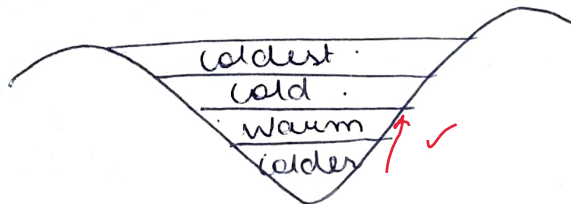 coldest
cold
warm
colder